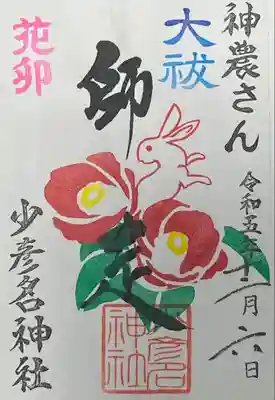 神農さん
令和五年十二月六日
大祓
師走
少彦名
神社
花卯
少彦名神社